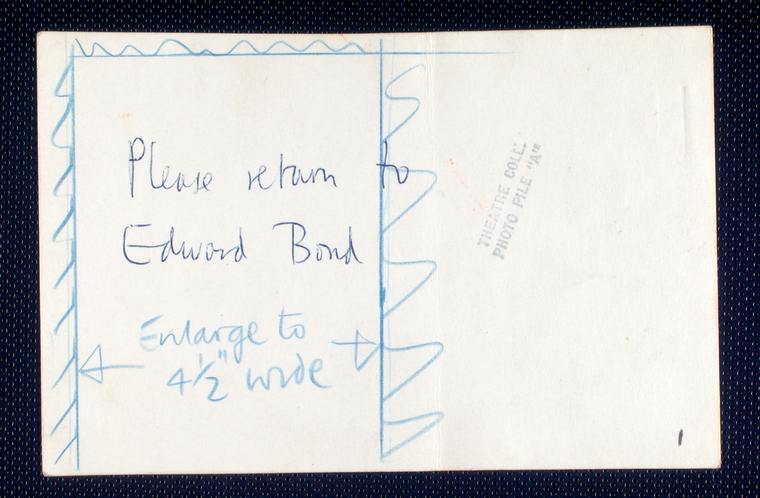 Please return to
Edward Bond
Enlarge to
4 1/2" wide
THEATRE COLL.
PHOTO FILE "A"
1